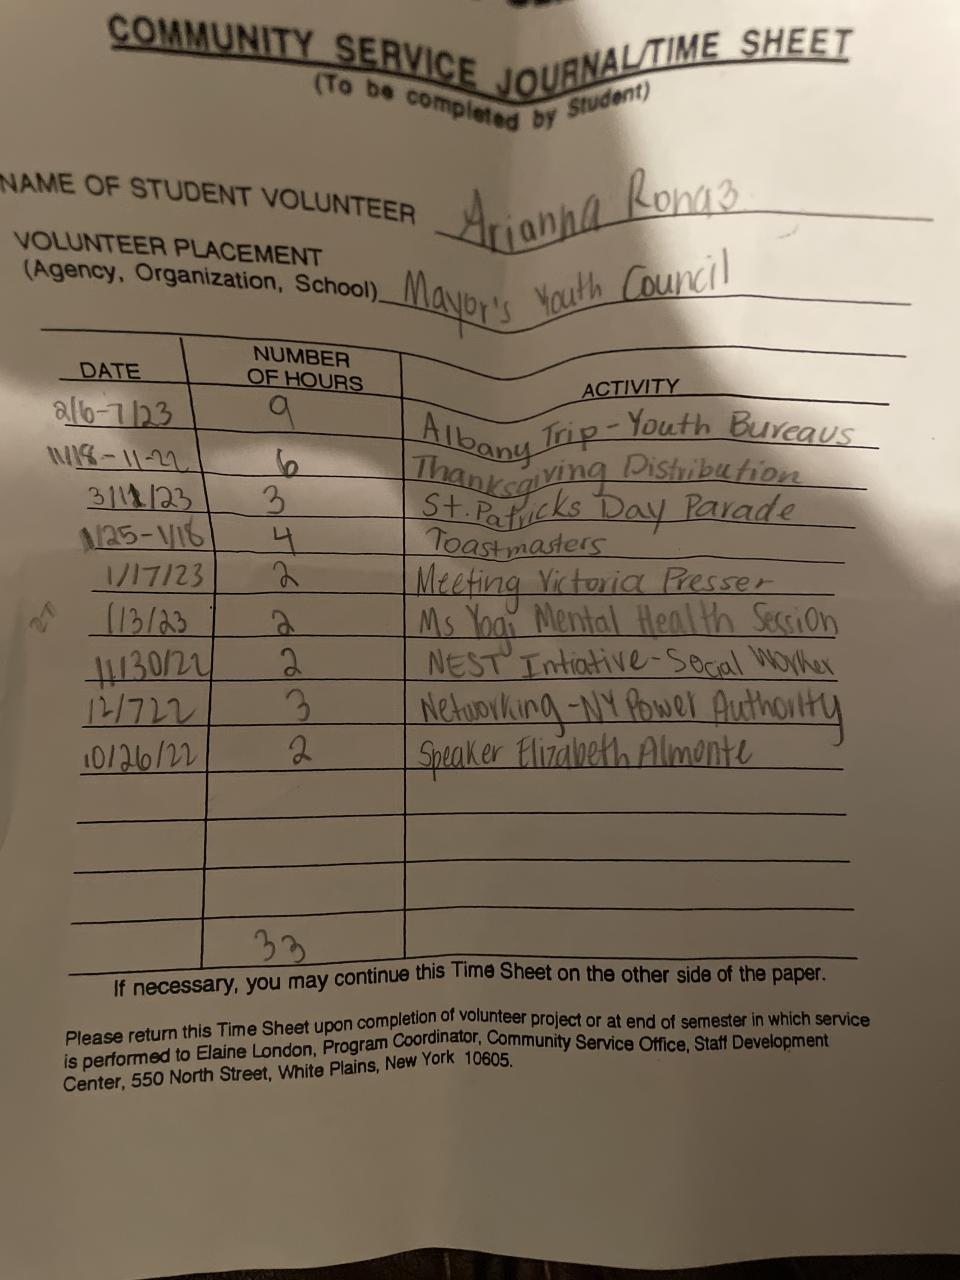 COMMUNITY SERVICE JOURNAL/TIME SHEET
(To be completed by Student)
NAME OF STUDENT VOLUNTEER Arianna
VOLUNTEER PLACEMENT
(Agency, Organization, School) Mayor's Youth Council
DATE NUMBER OF HOURS ACTIVITY
2/6-7/23 9 Albany Trip - Youth Bureaus
11/18-11-22 6 Thanksgiving Distribution
3/11/23 3 St. Patricks Day Parade
1/25-1/18 4 Toastmasters
1/17/23 2 Meeting Victoria Presser
1/3/23 2 Ms Yogi Mental Health Session
11/30/22 2 NEST Intiative - Social Worker
12/722 3 Networking - NY Power Authority
10/26/22 2 Speaker Elizabeth Almonte
33
If necessary, you may continue this Time Sheet on the other side of the paper.
Please return this Time Sheet upon completion of volunteer project or at end of semester in which service
is performed to Elaine London, Program Coordinator, Community Service Office, Staff Development
Center, 550 North Street, White Plains, New York 10605.